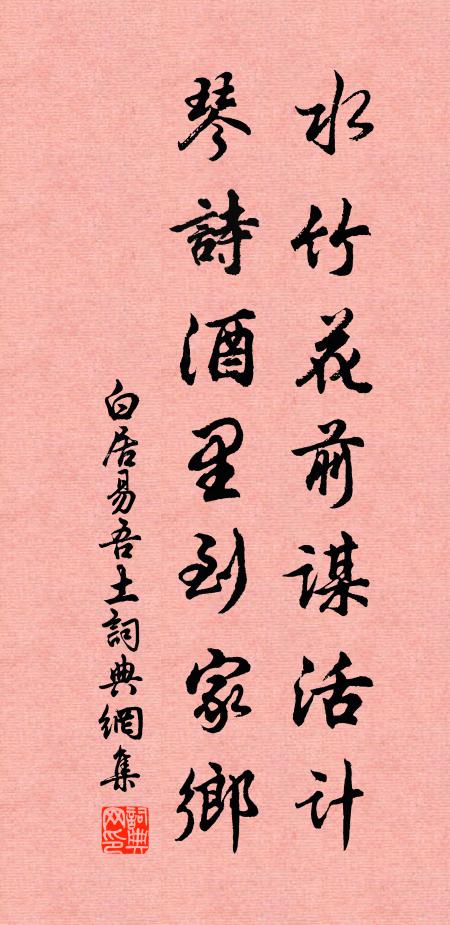 水竹花前謀活計
琴詩酒里到家鄉
白居易吾土詞典網集
詞典网印